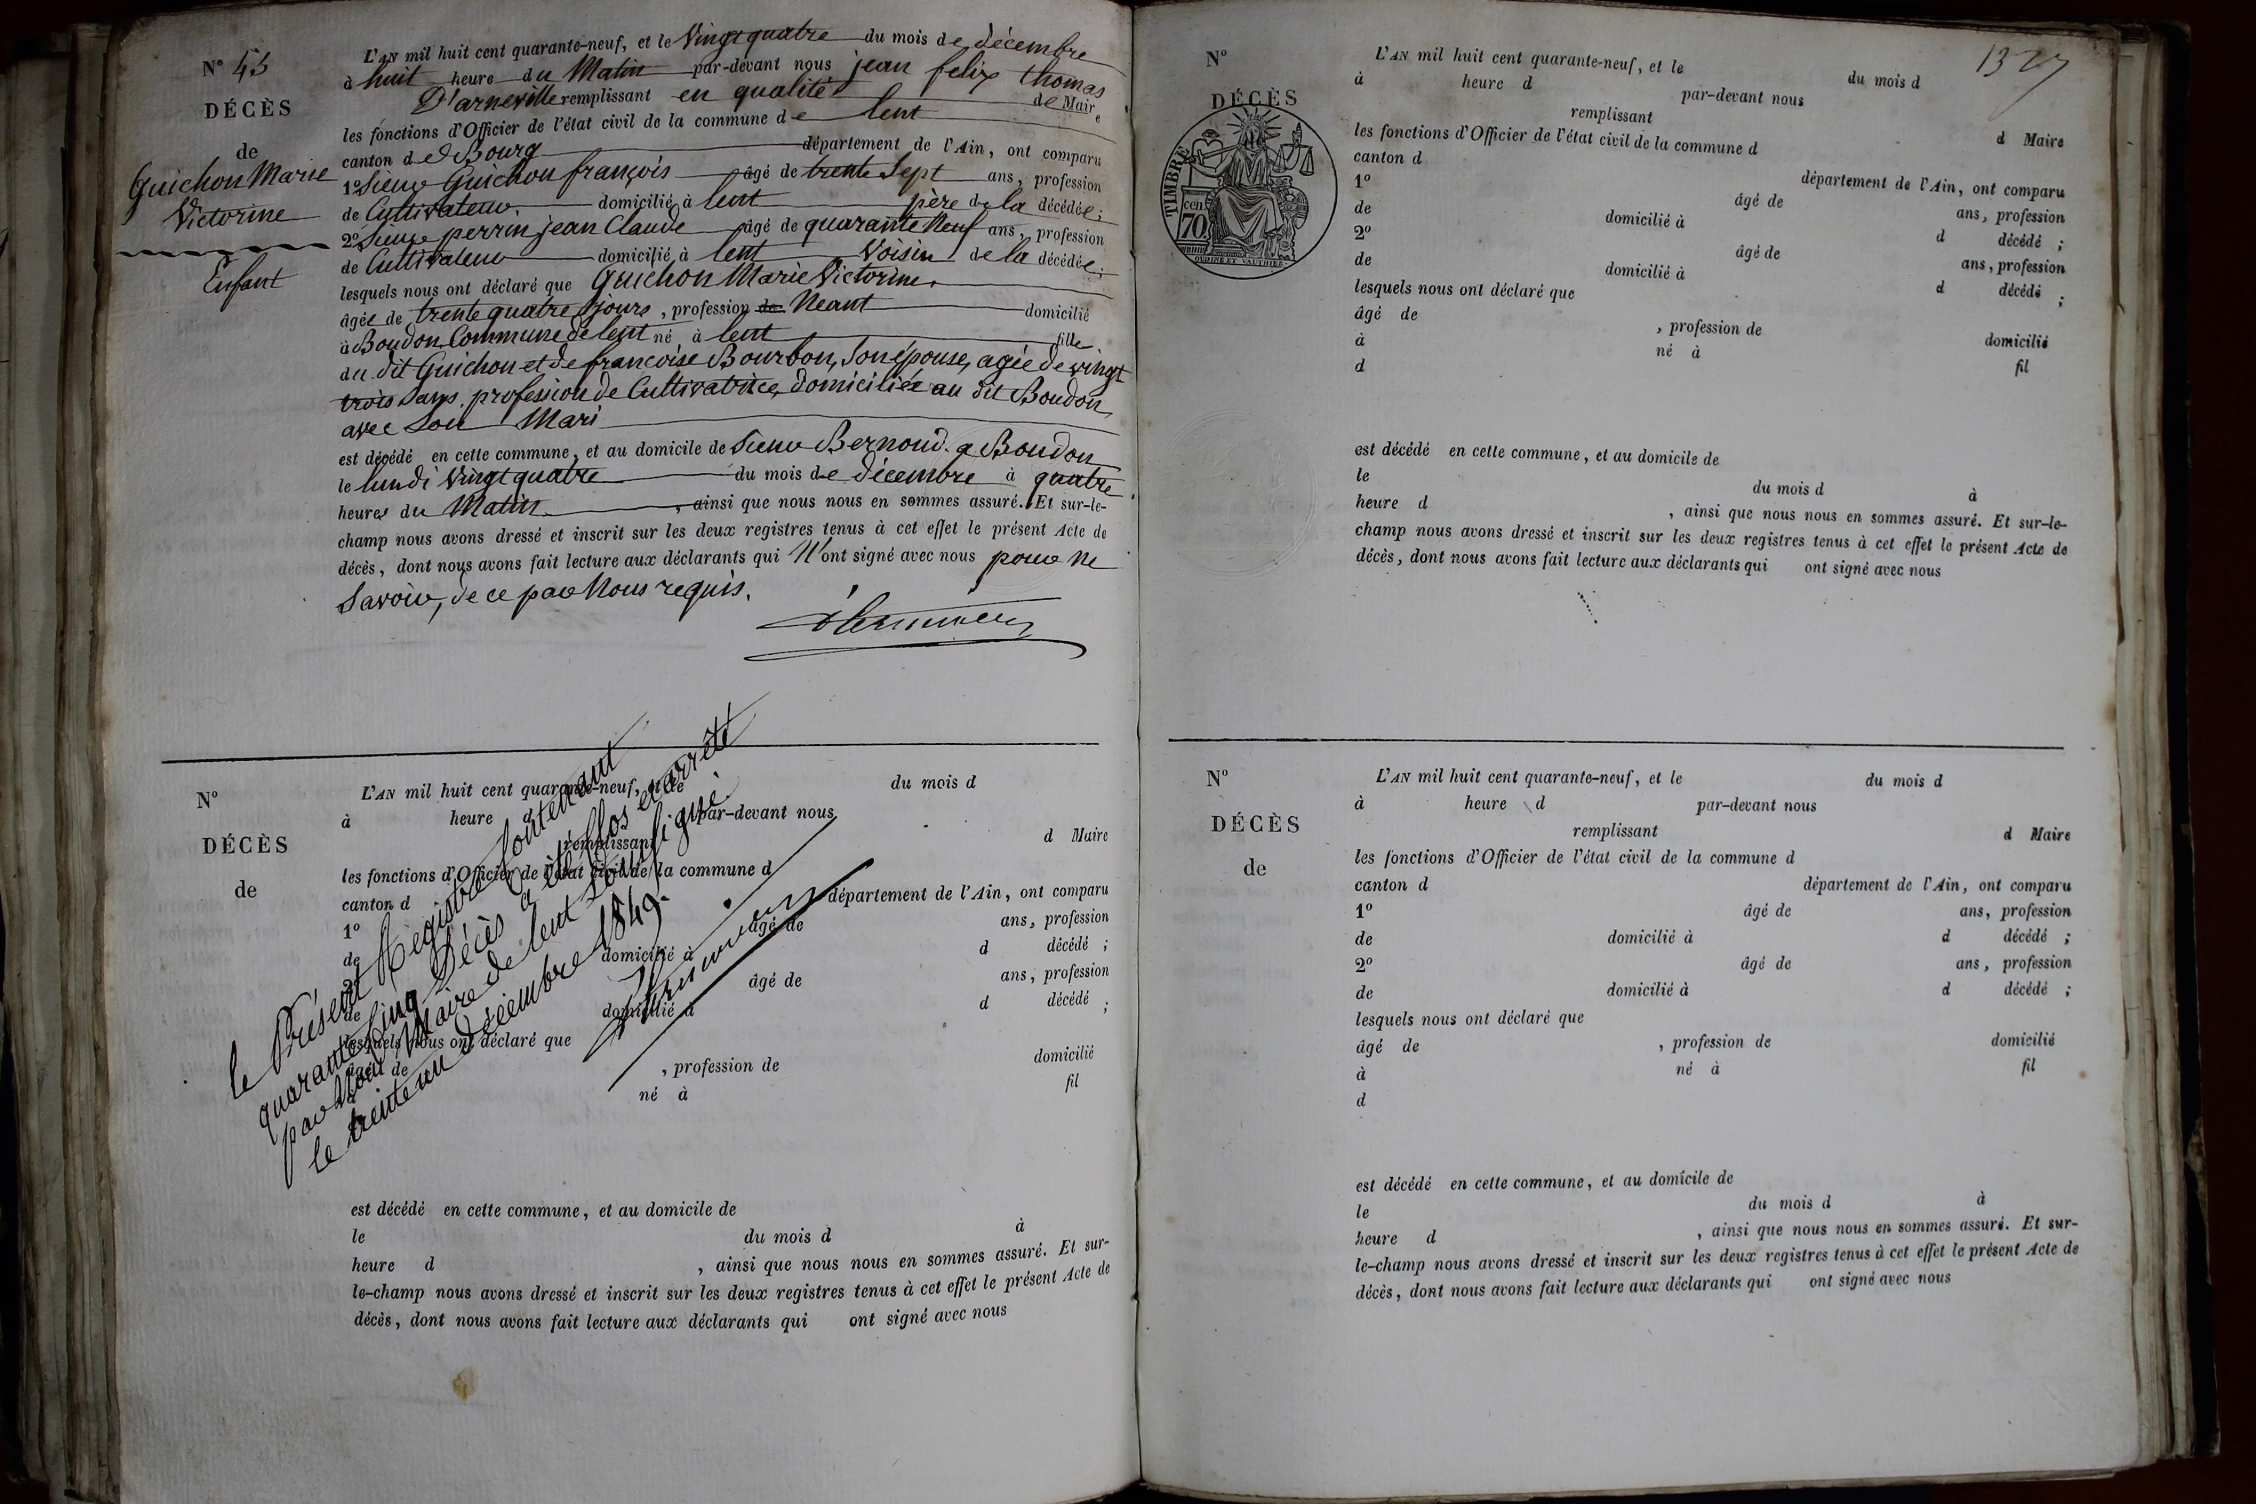 N° 45
DÉCÈS
de
Guichon Marie
Victorine
Enfant
L'AN mil huit cent quarante-neuf, et le Vingt quatre du mois de décembre
à huit heure du Matin par-devant nous jean felix thomas
D'arneville remplissant en qualité de Maire
les fonctions d'Officier de l'état civil de la commune de lent
canton de Bourg département de l'Ain, ont comparu
1° Sieur Guichon françois âgé de trente Sept ans, profession
de Cultivateur domicilié à lent père de la décédée;
2° Sieur perrin jean Claude âgé de quarante Neuf ans, profession
de Cultivateur domicilié à lent Voisin de la décédée;
lesquels nous ont déclaré que Guichon Marie Victorine,
âgée de trente quatre jours, profession de Neant domicilié
à Boudon Commune de lent né à lent fille
du dit Guichon et de francoise Bourbon, Son épouse, agée de vingt
trois ans, profession de Cultivatrice, domiciliée au dit Boudon,
avec Son Mari
est décédé en cette commune, et au domicile de Sieur Bernoud a Boudon
le lundi Vingt quatre du mois de décembre à quatre
heures du Matin, ainsi que nous nous en sommes assuré. Et sur-le-
champ nous avons dressé et inscrit sur les deux registres tenus à cet effet le présent Acte de
décès, dont nous avons fait lecture aux déclarants qui N'ont signé avec nous pour ne
Savoir, de ce par Nous requis.
N°
DÉCÈS
de
L'AN mil huit cent quarante-neuf, et le du mois d
à heure d par-devant nous
remplissant d Maire
les fonctions d'Officier de l'état civil de la commune d
canton d département de l'Ain, ont comparu
1° âgé de ans, profession
de domicilié à d décédé ;
2° âgé de ans, profession
de domicilié à d décédé ;
lesquels nous ont déclaré que
âgé de , profession de domicilié
né à fil
le Présent Registre Contenant
quarante Cinq Décès a été Clos et arrêté
par Nous Maire de lent Soussigné
le trente un Décembre 1849.
est décédé en cette commune, et au domicile de
le du mois d à
heure d , ainsi que nous nous en sommes assuré. Et sur-
le-champ nous avons dressé et inscrit sur les deux registres tenus à cet effet le présent Acte de
décès, dont nous avons fait lecture aux déclarants qui ont signé avec nous
1327
N°
DÉCÈS
TIMBRE
70 cen
L'AN mil huit cent quarante-neuf, et le du mois d
à heure d par-devant nous
remplissant d Maire
les fonctions d'Officier de l'état civil de la commune d
canton d département de l'Ain, ont comparu
1° âgé de ans, profession
de domicilié à d décédé ;
2° âgé de ans, profession
de domicilié à d décédé ;
lesquels nous ont déclaré que
âgé de , profession de domicilié
à né à fil
d
est décédé en cette commune, et au domicile de
le du mois d à
heure d , ainsi que nous nous en sommes assuré. Et sur-le-
champ nous avons dressé et inscrit sur les deux registres tenus à cet effet le présent Acte de
décès, dont nous avons fait lecture aux déclarants qui ont signé avec nous
N°
DÉCÈS
de
L'AN mil huit cent quarante-neuf, et le du mois d
à heure d par-devant nous
remplissant d Maire
les fonctions d'Officier de l'état civil de la commune d
canton d département de l'Ain, ont comparu
1° âgé de ans, profession
de domicilié à d décédé ;
2° âgé de ans, profession
de domicilié à d décédé ;
lesquels nous ont déclaré que
âgé de , profession de domicilié
à né à fil
d
est décédé en cette commune, et au domicile de
le du mois d à
heure d , ainsi que nous nous en sommes assuré. Et sur-
le-champ nous avons dressé et inscrit sur les deux registres tenus à cet effet le présent Acte de
décès, dont nous avons fait lecture aux déclarants qui ont signé avec nous